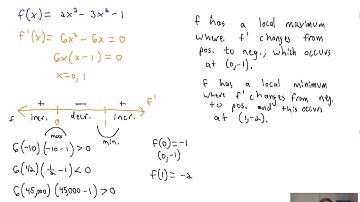 f(x) = 2x³ - 3x² - 1
f'(x) = 6x² - 6x = 0
6x(x - 1) = 0
x = 0, 1
+ - + f'
f incr. 0 decr. 1 incr.
max min.
6(-10)(-10-1) > 0
6(1/2)(1/2 - 1) < 0
6(45,000)(45,000 - 1) > 0
f(0) = -1
(0, -1)
f(1) = -2
f has a local maximum
where f' changes from
pos. to neg., which occurs
at (0, -1).
f has a local minimum
where f' changes from neg.
to pos. and this occurs
at (1, -2).